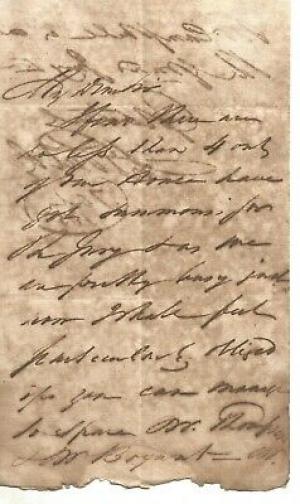 My Dear Sir
I find there are
no less than 4 out
of our House have
got summons for
the Jury & as we
are pretty busy just
now I shall feel
particularly obliged
if you can manage
to spare Mr. Thompson
& Mr Bryant